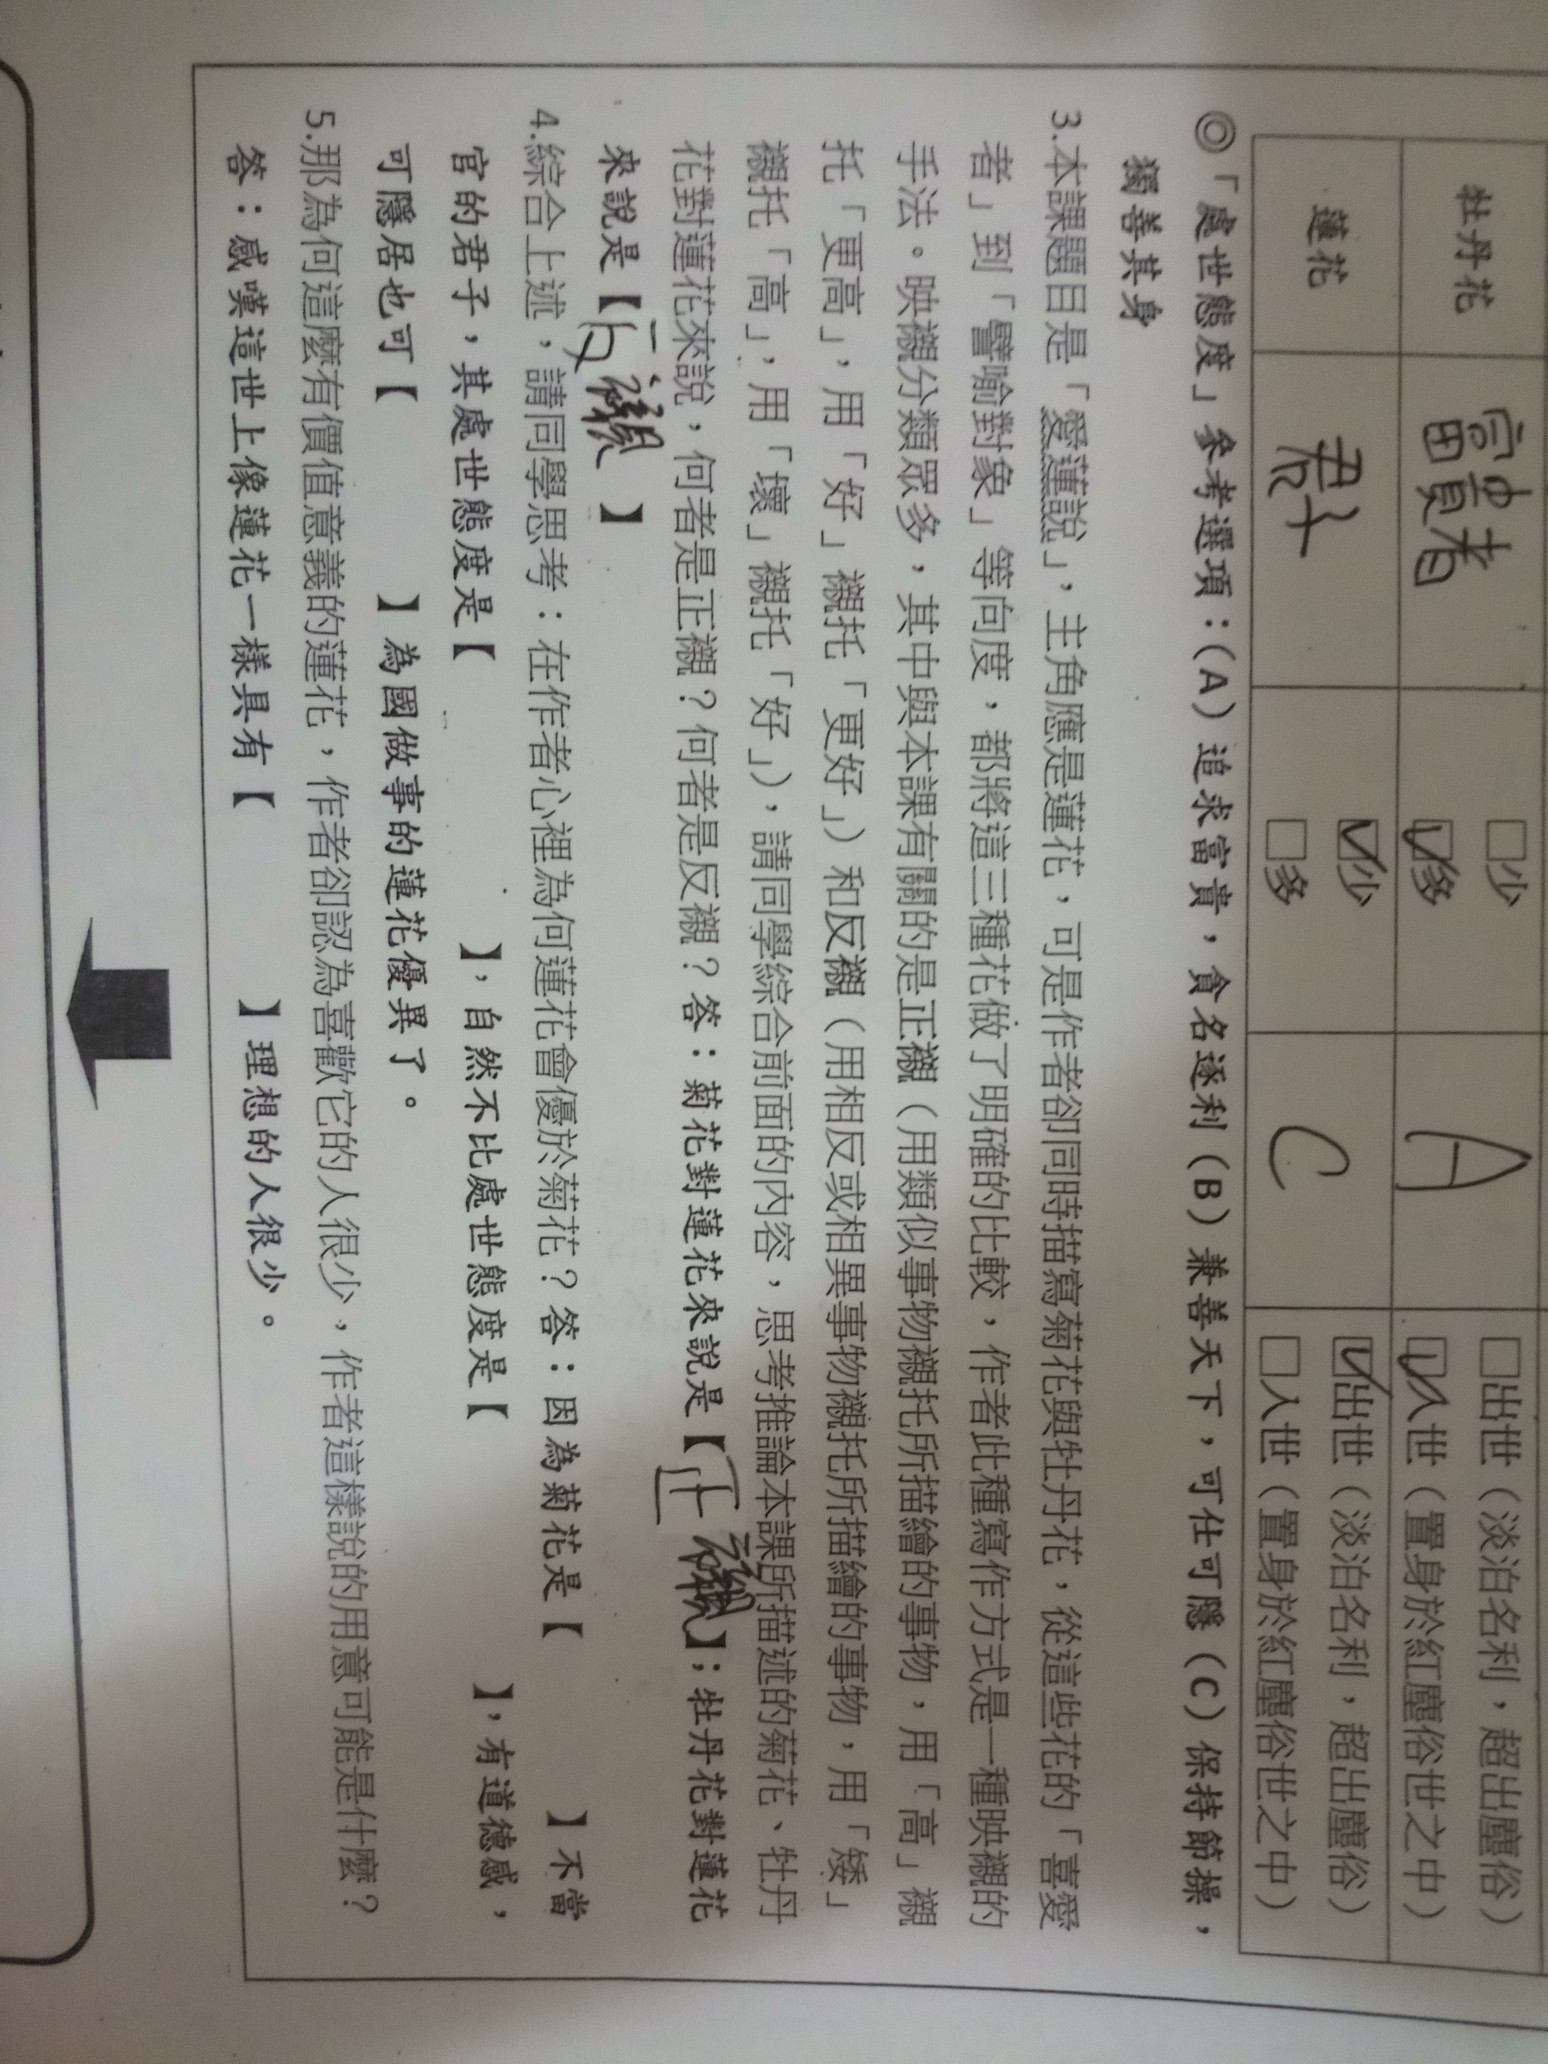 牡丹花 富貴者 □少 A □出世（淡泊名利，超出塵俗）
☑多 ☑入世（置身於紅塵俗世之中）
蓮花 君子 ☑少 C ☑出世（淡泊名利，超出塵俗）
□多 □入世（置身於紅塵俗世之中）
◎「處世態度」參考選項：(A) 追求富貴，貪名逐利 (B) 兼善天下，可仕可隱 (C) 保持節操，
獨善其身
3.本課題目是「愛蓮說」，主角應是蓮花，可是作者卻同時描寫菊花與牡丹花，從這些花的「喜愛
者」到「譬喻對象」等向度，都將這三種花做了明確的比較，作者此種寫作方式是一種映襯的
手法。映襯分類眾多，其中與本課有關的是正襯（用類似事物襯托所描繪的事物，用「高」襯
托「更高」，用「好」襯托「更好」）和反襯（用相反或相異事物襯托所描繪的事物，用「矮」
襯托「高」，用「壞」襯托「好」），請同學綜合前面的內容，思考推論本課所描述的菊花、牡丹
花對蓮花來說，何者是正襯？何者是反襯？答：菊花對蓮花來說是【正襯】；牡丹花對蓮花
來說是【反襯】
4.綜合上述，請同學思考：在作者心裡為何蓮花會優於菊花？答：因為菊花是【 】不當
官的君子，其處世態度是【 】，自然不比處世態度是【 】，有道德感，
可隱居也可【 】為國做事的蓮花優異了。
5.那為何這麼有價值意義的蓮花，作者卻認為喜歡它的人很少，作者這樣說的用意可能是什麼？
答：感嘆這世上像蓮花一樣具有【 】理想的人很少。